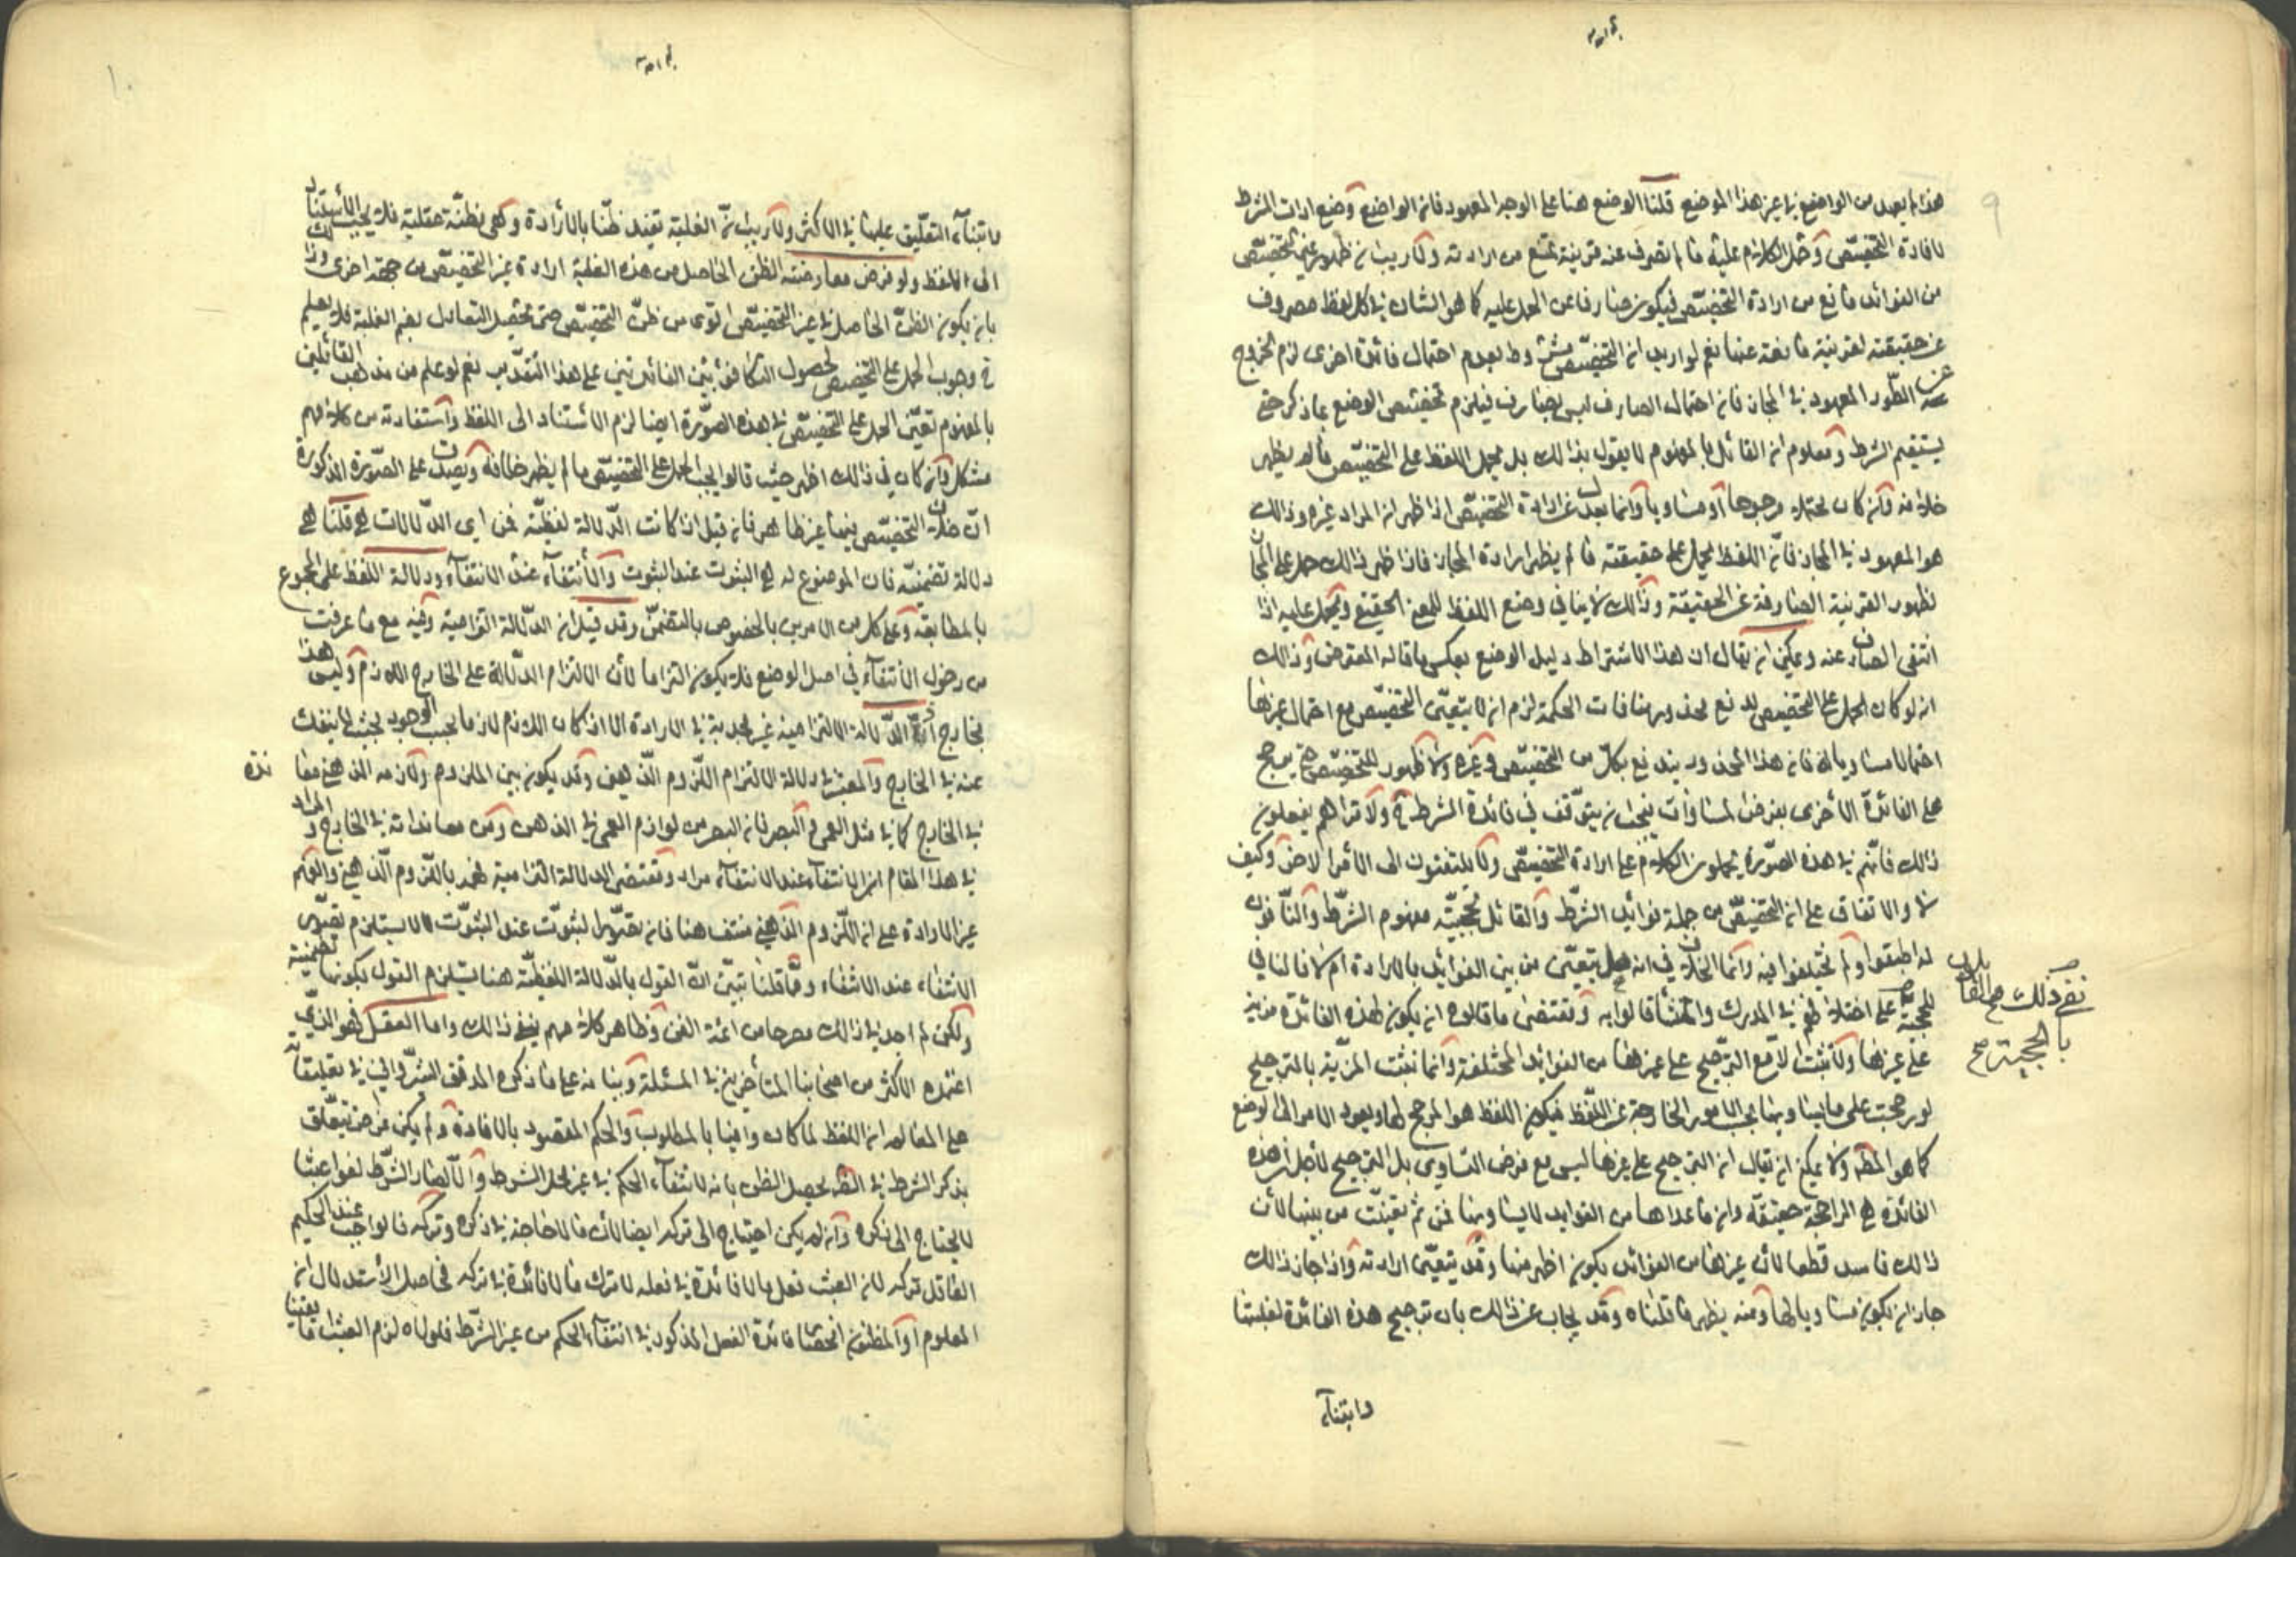 ٩
هذا لم يعهد من الواضع في غير هذا الموضع قلنا الوضع هنا على الوجه المعهود فان الواضع وضع ادات الشرط
لافادة التخصيص وحمل الكلام عليه ما لم تصرف عنه قرينة تمنع من ارادته ولا ريب ان ظهور غير التخصيص
من الفوائد مانع من ارادة التخصيص فيكون صارفا عن الحمل عليه كما هو الشان في كل لفظ مصروف
عن حقيقته لقرينة مانعة عنها نعم لو اريد ان التخصيص مشروط بعدم احتمال فائدة اخرى لزم الخروج
عن الطور المعهود في المجاز فان احتمال الصارف ليس بصارف فيلزم تخصيص الوضع بما ذكر حتى
يستقيم الشرط ومعلوم ان القائل بالمفهوم لا يقول بذالك بل يحمل اللفظ على التخصيص ما لم يظهر
خلافه وان كان محتملا مرجوحا او مساويا وانما يعدل عن ارادة التخصيص اذا ظهر ان المراد غيره وذالك
هو المعهود في المجاز فان اللفظ يحمل على حقيقته ما لم يظهر ارادة المجاز فاذا ظهر ذالك حمل على المجاز
لظهور القرينة الصارفة عن الحقيقة وذالك لا ينافي وضع اللفظ للمعنى الحقيقي ويحمل عليه اذا
انتفى الصارف عنه ويمكن ان يقال ان هذا الاشتراط دليل الوضع بعكس ما قاله المعترض وذالك
انه لو كان الحمل على التخصيص لدفع محذور منافات الحكمة لزم ان لا يتعين التخصيص مع احتمال غيرها
احتمالا مساويا له فان هذا المحذور يندفع بكل من التخصيص وغيره ولا ظهور للتخصيص حتى يرجح
على الفائدة الأخرى بفرض المساوات فيجب ان يتوقف في فائدة الشرط ح ولا تراهم يفعلون
ذالك فانهم في هذه الصورة يحملون الكلام على ارادة التخصيص ولا يلتفتون الى الأمر الاخر وكيف
لا والاتفاق على ان التخصيص من جملة فوائد الشرط والقائل بحجية مفهوم الشرط والنافون
له اطبقوا ولم يختلفوا فيه وانما الخلاف في انه هل يتعين من بين الفوائد بالارادة ام لا فالنافي
للحجية على اختلافهم في المدرك والمنشأ قالوا به ومقتضى ما قالوه ان يكون لهذه الفائدة مزية
على غيرها ولا تثبت الا مع الترجيح على غيرها من الفوائد المختلفة وانما تثبت المزية بالترجيح
لو رجحت على ما يساويها بحسب الامور الخارجة عن اللفظ فيكون اللفظ هو المرجح لها ويعود الامر الى الوضع
كما هو المط ولا يمكن ان يقال ان الترجيح على غيرها ليس مع فرض التساوي بل الترجيح لأجل ان هذه
الفائدة هي الراجحة حقيقة وان ما عداها من الفوايد لا يساويها فمن ثم تعينت من بينها لأن
ذالك فاسد قطعا لأن غيرها من الفوائد يكون اظهر منها وقد يتعين ارادته واذا جاز ذالك
جاز ان يكون مساويا لها ومنه يظهر ما قلناه وقد يجاب عن ذالك بان ترجيح هذه الفائدة لغلبتها
وابتنآء
نفي ذلك
بالحجية صح
١٠
وابتنآء التعليق عليها في الاكثر ولا ريب ان الغلبة تفيد ظنا بالأرادة وهى مظنة عقلية فلا يجب الأستناد
الى اللفظ ولو فرض معارضة الظن الحاصل من هذه الغلبة ارادة غير التخصيص من جهة اخرى وذلك
بان يكون الظن الحاصل في غير التخصيص اقوى من ظن التخصيص حتى تحصيل التعادل بضم الغلبة فلا يعلم
ح وجوب الحمل على التخصيص لحصول التكافؤ بين الفائدتين على هذا التقدير نعم لو علم من مذهب القائلين
بالمفهوم تعين الحمل على التخصيص في هذه الصورة ايضا لزم الأستناد الى اللفظ واستفادته من كلامهم
مشكل وان كان في ذالك اظهر حيث قالوا يجب الحمل على التخصيص ما لم يظهر خلافه ويصدق على الصورة المذكورة
ان خلاف التخصيص فيها غير ظاهر فان قيل اذا كانت الدلالة لفظية فمن اي الدلالات هي قلنا هي
دلالة تضمنية فان الموضوع له هو الثبوت عند الثبوت والأنتفآء عند الانتفآء ودلالة اللفظ على المجموع
بالمطابقة وعلى كل من الامرين بالخصوص بالتضمن وقد قيل ان الدلالة التزامية وفيه مع ما عرفت
من دخول الأنتفآء في اصل الوضع فلا يكون التزاما لأن الالتزام الدلالة على الخارج اللازم وليس هذا
بخارج ان الدلالة الالتزامية غير مجدية في الارادة الا اذا كان اللازم لازما بحسب الوجود بحيث لا ينفك
عنه في الخارج والمعتبر في دلالة الالتزام اللزوم الذهني وقد يكون بين الملزوم ولازمه الذهني معاندة
في الخارج كما في مثل العمى والبصر فان البصر من لوازم العمى في الذهن ومن معانداته في الخارج والمراد
في هذا المقام ان الانتفآء عند الانتفآء مراد ومقتضى الدلالة التزامية فهمه باللزوم الذهني والفهم
غير الارادة على ان اللزوم الذهني منتف هنا فان تصور الثبوت عند الثبوت لا يستلزم تصور
الانتفاء عند الانتفاء ومما قلنا تبين ان القول بالدلالة اللفظية هنا يستلزم القول بكونها تضمنية
ولكن لم اجد في ذالك مصرحا من ائمة الفن وظاهر كلامهم ينفي ذالك واما العقل فهو الذي
اعتمده الاكثر من اصحابنا المتأخرين في المسئلة وبنائه على ما ذكره المدقق الشرواني في تعليقاته
على المعالم ان اللفظ لما كان وافيا بالمطلوب والحكم المقصود بالافادة ولم يكن غرض تعلق
بذكر الشرط في الظ يحصل الظن بانه لانتفآء الحكم في غير محل الشرط والا لصار الشرط لغوا عبثا
لا يحتاج الى ذكره وان لم يكن احتياج الى تركه ايضا لأن ما لا حاجة في ذكره وتركه فالواجب عند الحكيم
العاقل تركه لان العبث فعل ما لا فائدة في فعله لا ترك ما لا فائدة في تركه فحاصل الأستدلال ان
المعلوم او المظنون انحصار فائدة الفعل المذكور في انتفآء الحكم من غير الشرط فلولاه لزم العبث